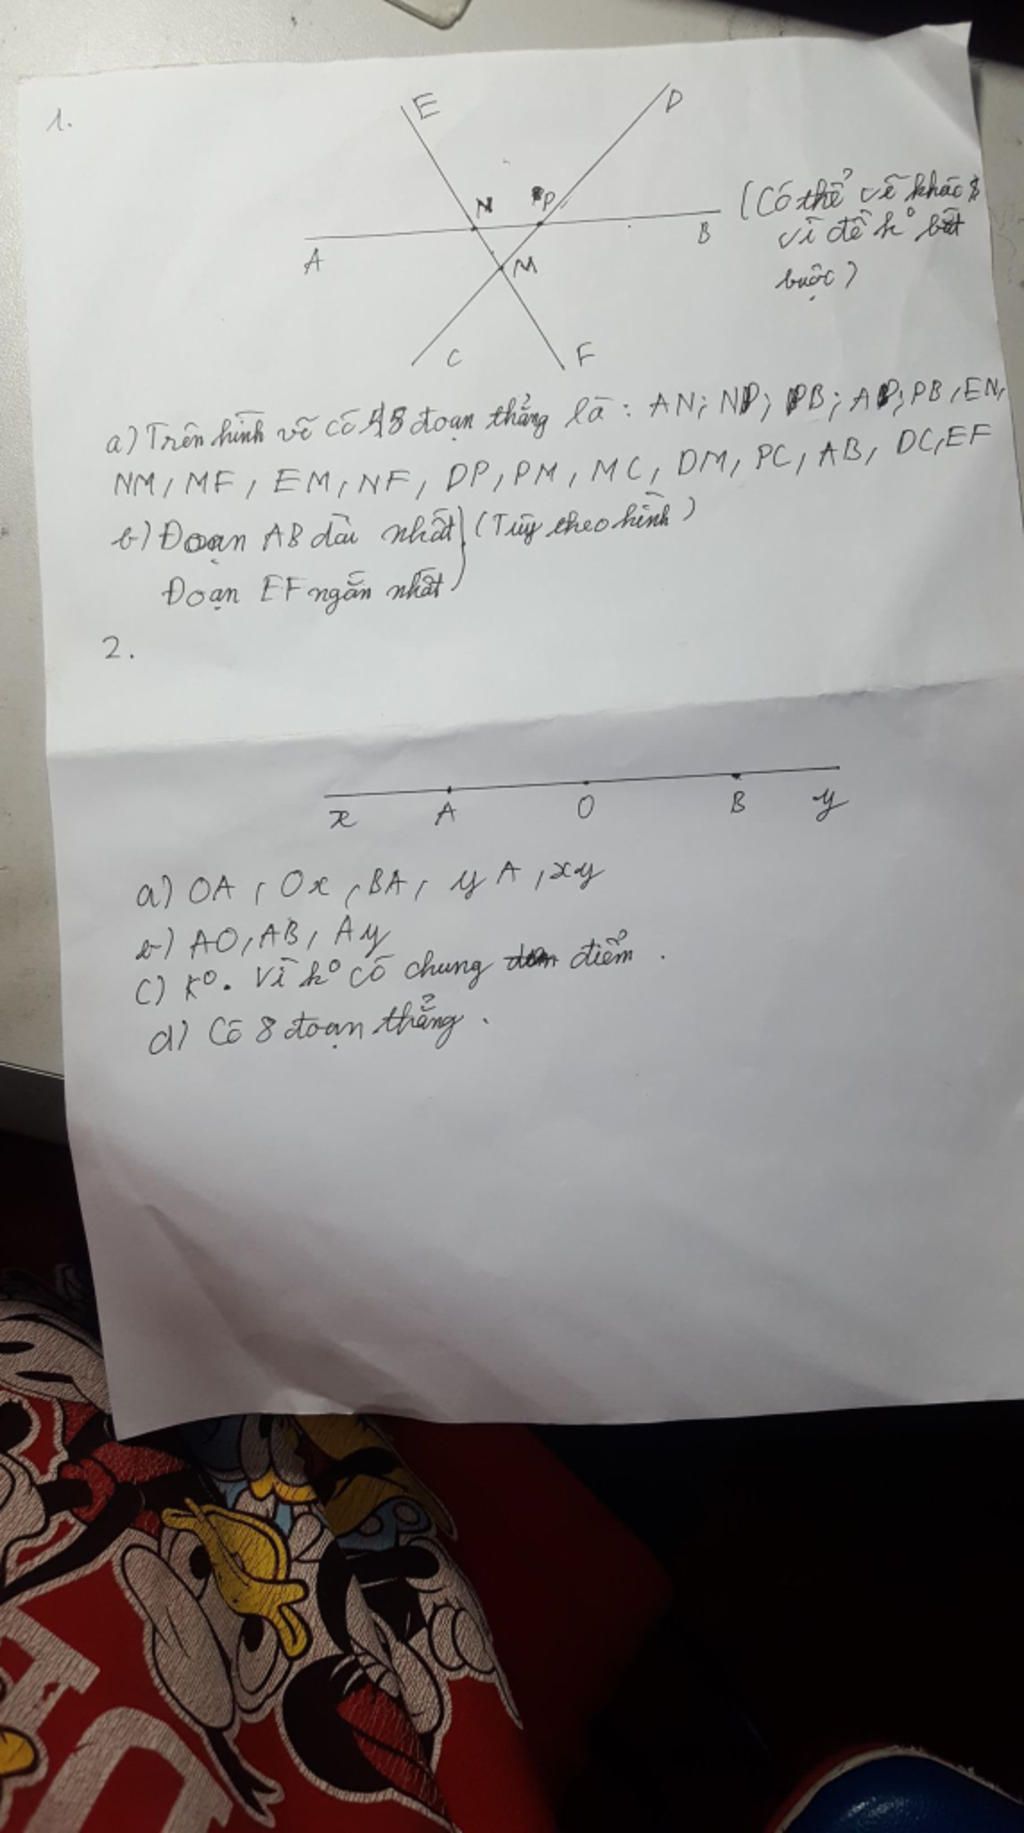 1.
E
D
N
P
A
B
M
C
F
(Có thể vẽ khác
vì đề k° bắt
buộc)
a) Trên hình vẽ có 18 đoạn thẳng là: AN; NP; PB; AP; PB, EN,
NM, MF, EM, NF, DP, PM, MC, DM, PC, AB, DC, EF
b) Đoạn AB dài nhất } (Tùy theo hình)
Đoạn EF ngắn nhất
2.
x A O B y
a) OA, Ox, BA, yA, xy
b) AO, AB, Ay
c) K°. Vì k° có chung điểm.
d) Có 8 đoạn thẳng.